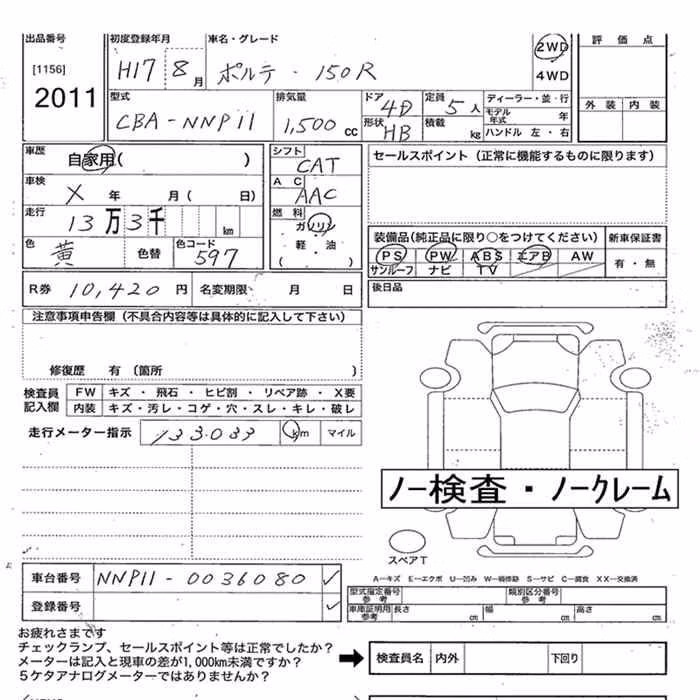 出品番号 初度登録年月 車名・グレード 2WD 評価点
[1156] H17 8月 ポルテ・150R 4WD
2011 型式 排気量 ドア 定員 ディーラー・並・行 外装 内装
CBA-NNP11 1,500cc 4D 5人 モデル年式 年
形状 HB 積載 kg ハンドル 左・右
車歴 自家用( ) シフト CAT セールスポイント(正常に機能するものに限ります)
車検 X 年 月( 日) AC AAC
走行 13万3千 km 燃料 ガソリン 装備品(純正品に限り○をつけてください) 新車保証書
色 黄 色替 色コード 597 軽・油 ( ) PS PW ABS エアB AW 有・無
サンルーフ ナビ TV
R券 10,420円 名変期限 月 日 後日品
注意事項申告欄(不具合内容等は具体的に記入して下さい)
修復歴 有(箇所 )
検査員記入欄 FW キズ・飛石・ヒビ割・リペア跡・X要
内装 キズ・汚レ・コゲ・穴・スレ・キレ・破レ
走行メーター指示 133,033 km マイル
ノー検査・ノークレーム
スペアT
車台番号 NNP11-0036080 ✓
A-キズ E-エクボ U-凹み W-補修跡 S-サビ C-腐食 XX-交換済
型式指定番号 参考 類別区分番号 参考
登録番号 ✓ 車庫証明用 参考 長さ cm 幅 cm 高さ cm
お疲れさまです
チェックランプ、セールスポイント等は正常でしたか?
メーターは記入と現車の差が1,000km未満ですか? ➡ 検査員名 内外 下回り
5ケタアナログメーターではありませんか?